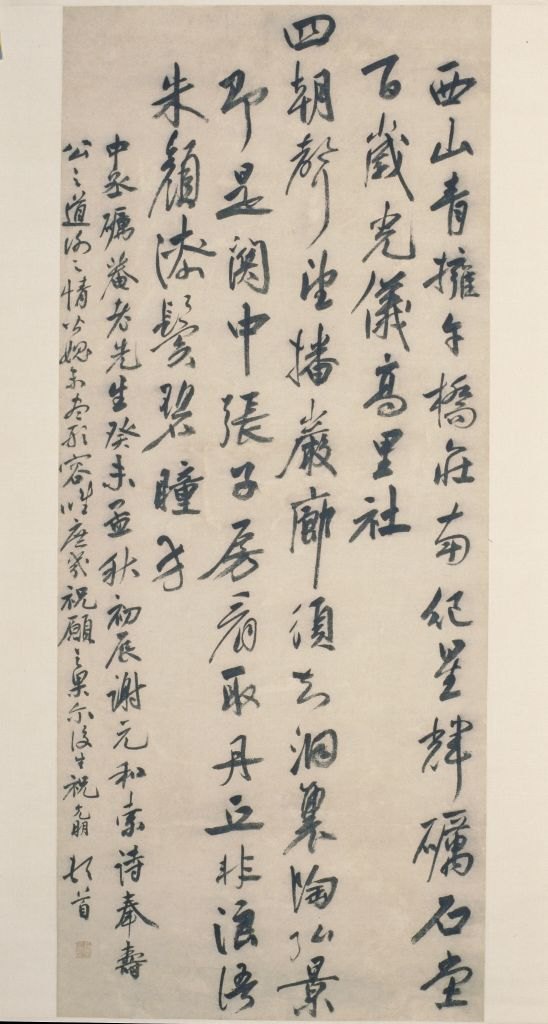 西山青擁午橋莊南紀星輝礪石堂
百歲光儀高里社
四朝聲望播巖廊須知洞裏陶弘景
即是關中張子房看取丹丘非浪語
朱顏漆鬢碧瞳方
中丞礪菴老先生癸未孟秋初辰謝元和索詩奉壽
公之道德之情以媿未盡形容惟庶幾祝願之果爾後生祝允明頓首